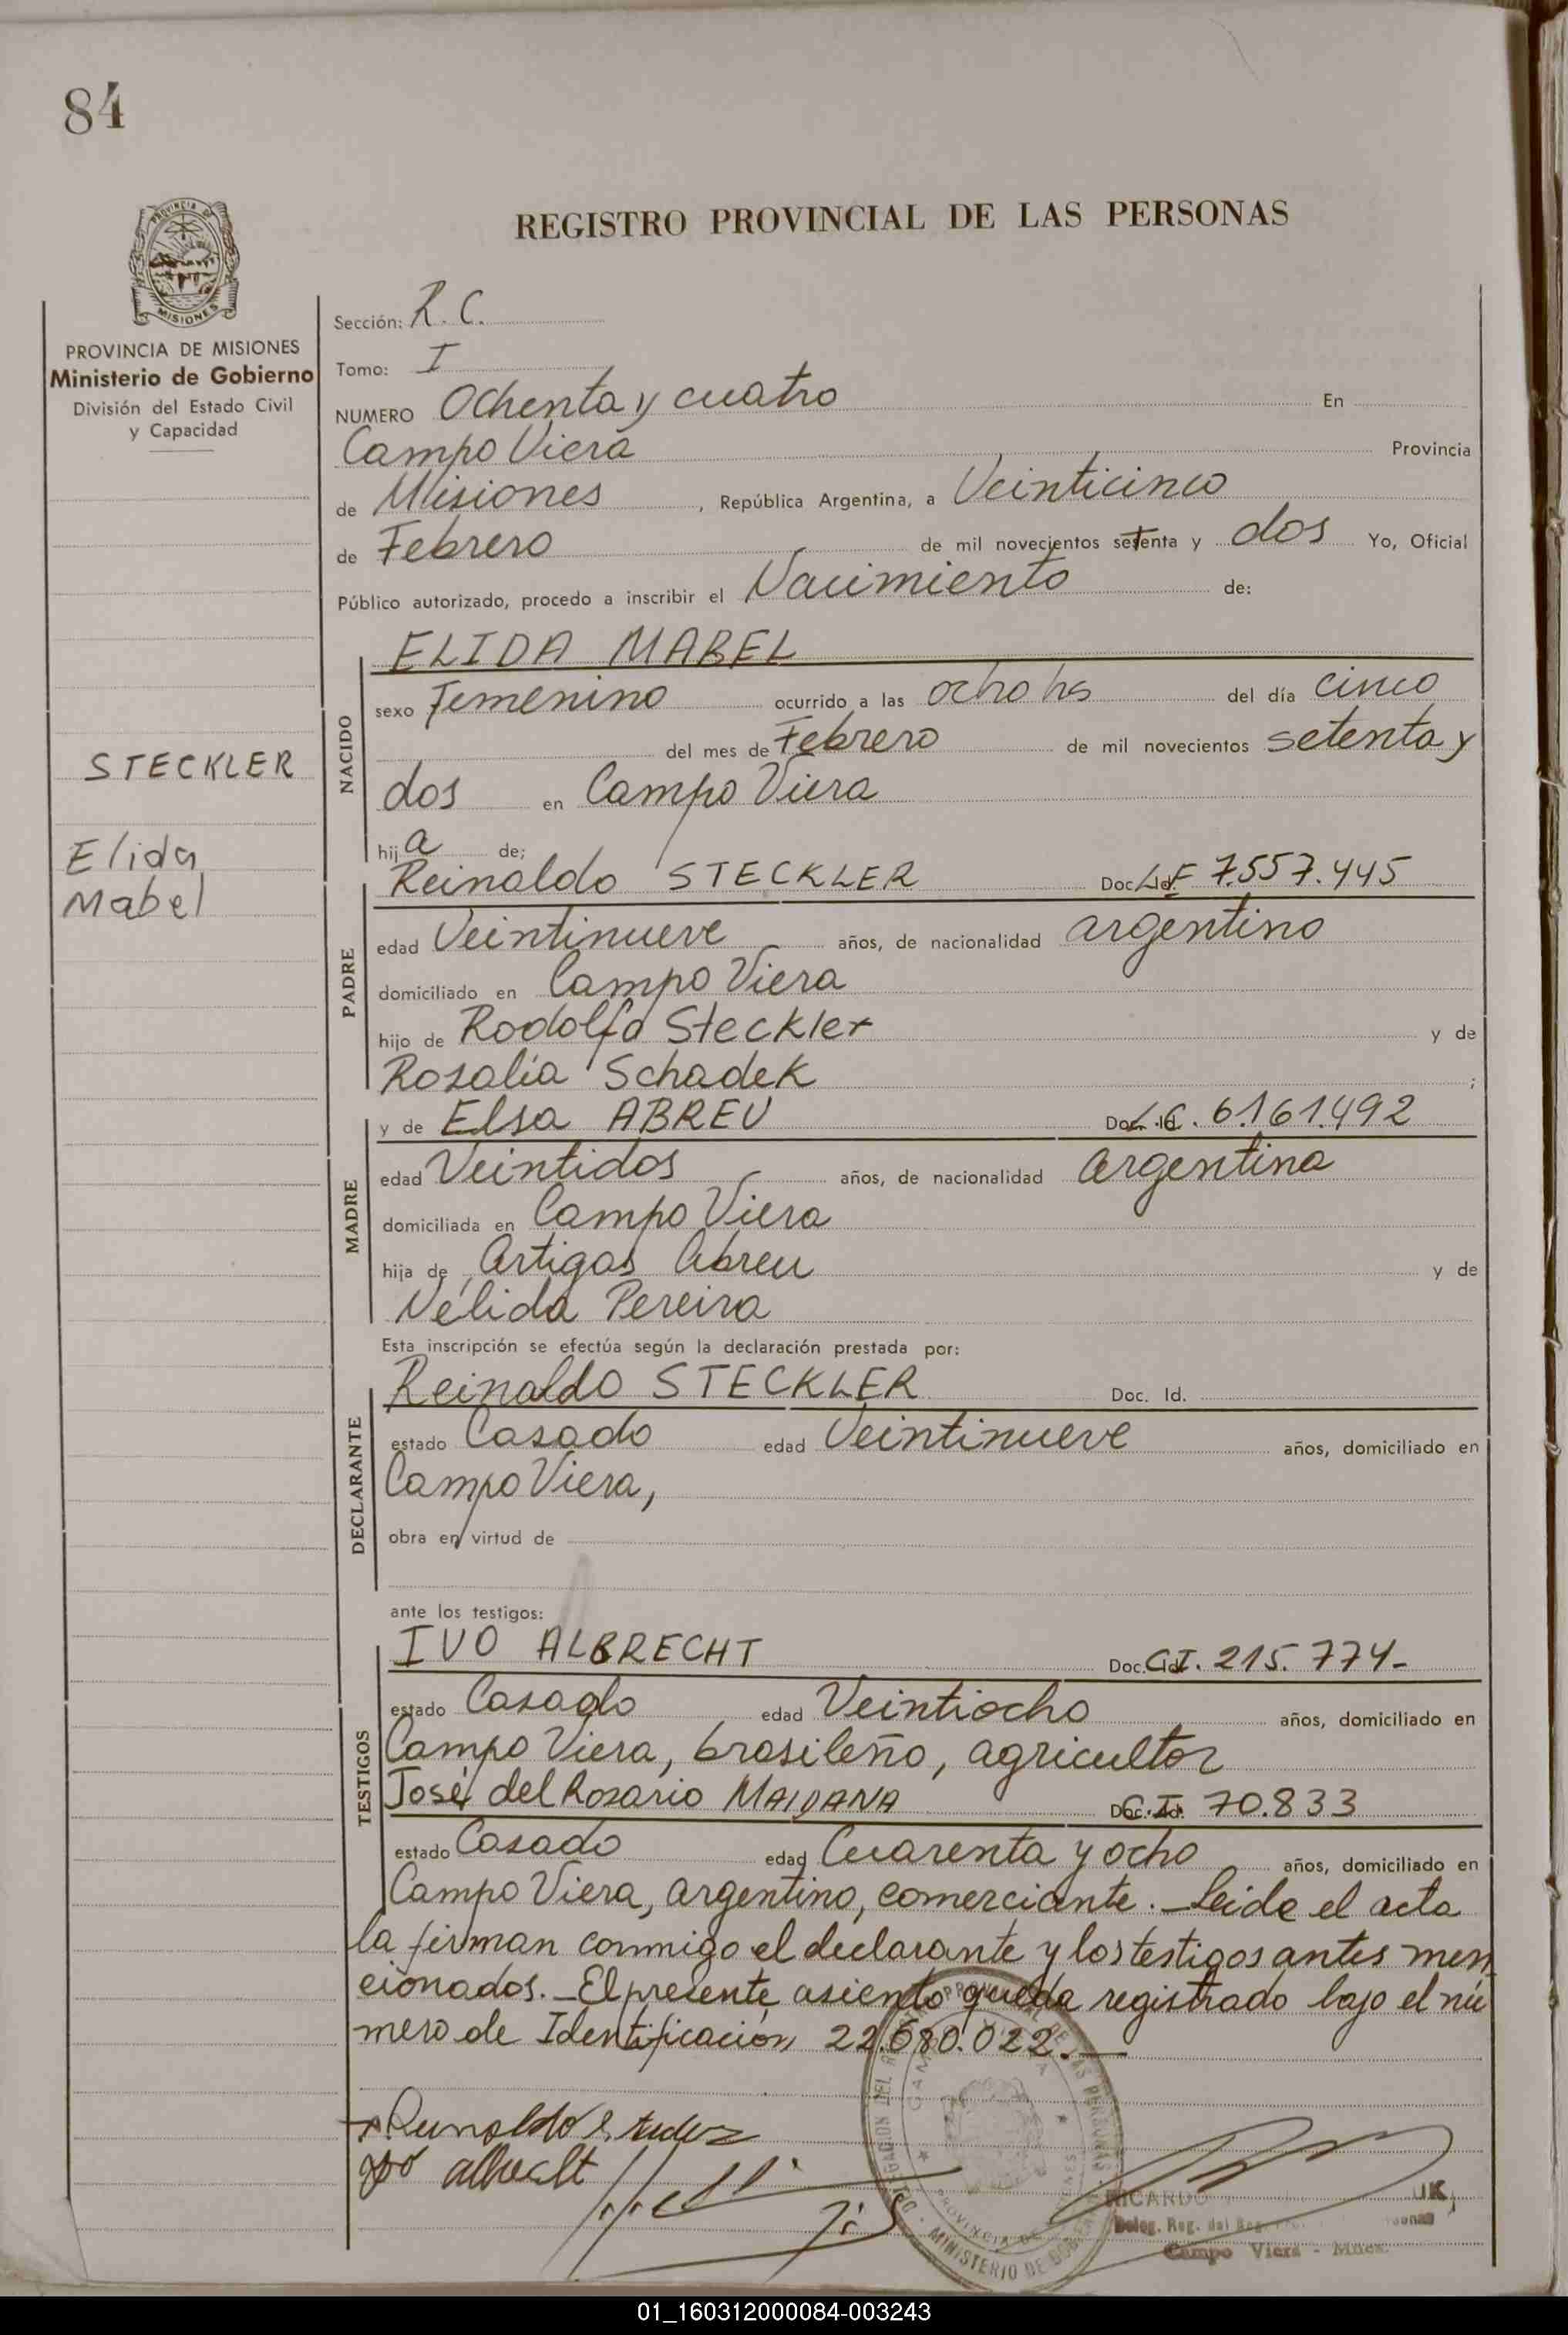 84
REGISTRO PROVINCIAL DE LAS PERSONAS
PROVINCIA DE MISIONES
Ministerio de Gobierno
División del Estado Civil
y Capacidad
STECKLER
Elida
Mabel
Sección: R. C.
Tomo: I
NUMERO Ochenta y cuatro En
Campo Viera Provincia
de Misiones , República Argentina, a Veinticinco
de Febrero de mil novecientos setenta y dos Yo, Oficial
Público autorizado, procedo a inscribir el Nacimiento de:
NACIDO
ELIDA MABEL
sexo Femenino ocurrido a las ocho hs del día cinco
del mes de Febrero de mil novecientos setenta y
dos en Campo Viera
hija de;
PADRE
Reinaldo STECKLER Doc. Id. L.E 7.557.445
edad Veintinueve años, de nacionalidad argentino
domiciliado en Campo Viera
hijo de Rodolfo Steckler y de
Rosalia Schadek ;
MADRE
y de Elsa ABREU Doc. Id. L.C. 6.161.492
edad Veintidos años, de nacionalidad argentina
domiciliada en Campo Viera
hija de Artigas Abreu y de
Nélida Pereira
Esta inscripción se efectúa según la declaración prestada por:
DECLARANTE
Reinaldo STECKLER Doc. Id.
estado Casado edad Veintinueve años, domiciliado en
Campo Viera,
obra en virtud de
ante los testigos:
TESTIGOS
IVO ALBRECHT Doc. Id. C.I. 215.774-
estado Casado edad Veintiocho años, domiciliado en
Campo Viera, brasileño, agricultor
José del Rosario MAIDANA Doc. Id. C.I. 70.833
estado Casado edad Cuarenta y ocho años, domiciliado en
Campo Viera, argentino, comerciante. - Leida el acta
la firman conmigo el declarante y los testigos antes men
cionados. - El presente asiento queda registrado bajo el nú
mero de Identificación 22.680.022. —
Reinaldo Steckler
Ivo Albrecht
RICARDO UK
Deleg. Reg. del Reg.
Campo Viera - Mnes.
01_160312000084-003243